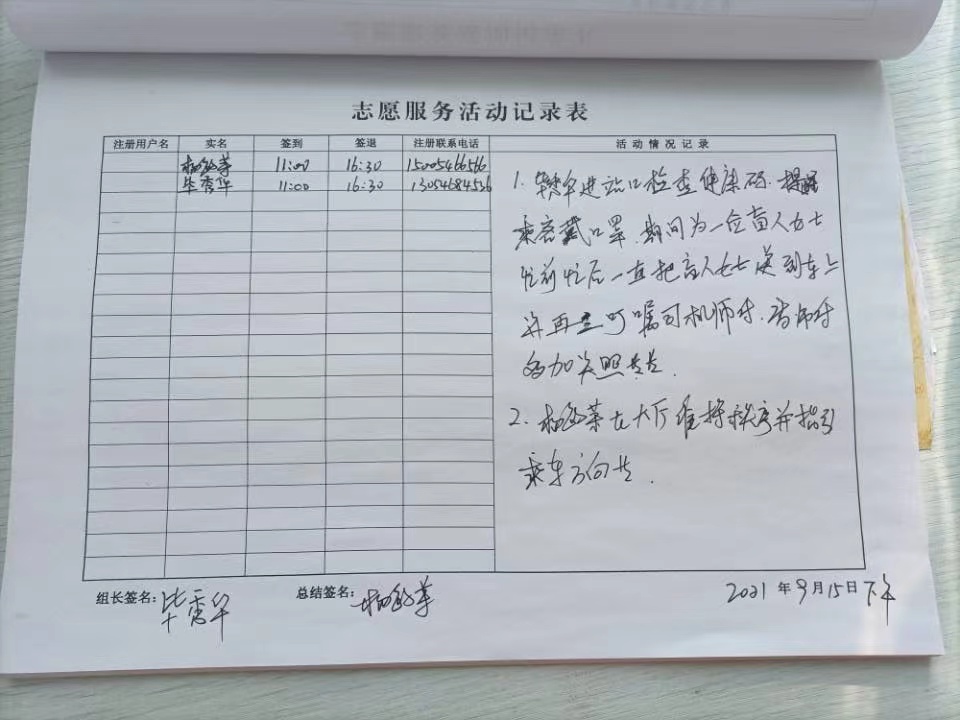 志愿服务活动记录表
注册用户名 实名 签到 签退 注册联系电话 活动情况记录
11:00 16:30
毕秀华 11:00 16:30 13054684536
1. 进站口检查健康码.提醒
乘客戴口罩.期间为一位盲人女士
忙前忙后一直把盲人女士送到车上
并再三叮嘱司机师付.
多加关照
2. 在大厅维持秩序并指引
乘车方向
组长签名: 毕秀华 总结签名:
2021年9月15日下午